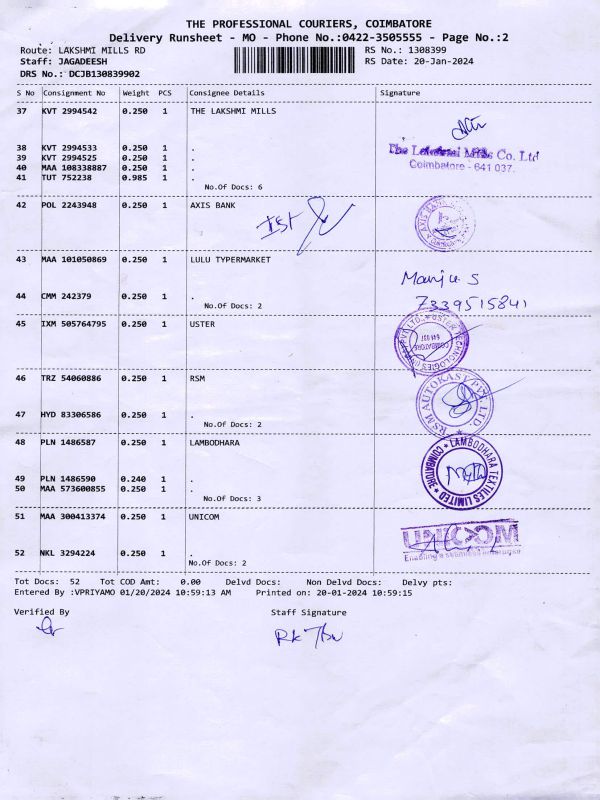 THE PROFESSIONAL COURIERS, COIMBATORE
Delivery Runsheet - MO - Phone No.:0422-3505555 - Page No.:2
Route: LAKSHMI MILLS RD RS No.: 1308399
Staff: JAGADEESH RS Date: 20-Jan-2024
DRS No.: DCJB130839902
S No Consignment No Weight PCS Consignee Details Signature
37 KVT 2994542 0.250 1 THE LAKSHMI MILLS
38 KVT 2994533 0.250 1 .
The Lakshmi Mills Co. Ltd
39 KVT 2994525 0.250 1 .
40 MAA 108338887 0.250 1 .
Coimbatore - 641 037.
41 TUT 752238 0.985 1 .
No.Of Docs: 6
42 POL 2243948 0.250 1 AXIS BANK
IST
AXIS BANK
43 MAA 101050869 0.250 1 LULU TYPERMARKET
Manju S
44 CMM 242379 0.250 1 .
7339515841
No.Of Docs: 2
45 IXM 505764795 0.250 1 USTER
USTER TECHNOLOGIES
COIMBATORE
641 037
46 TRZ 54060886 0.250 1 RSM
RSM AUTOKAST PVT. LTD.
47 HYD 83306586 0.250 1 .
No.Of Docs: 2
48 PLN 1486587 0.250 1 LAMBODHARA
LAMBODHARA TEXTILES LIMITED
COIMBATORE
49 PLN 1486590 0.240 1 .
50 MAA 573600855 0.250 1 .
No.Of Docs: 3
51 MAA 300413374 0.250 1 UNICOM
UNICOM
52 NKL 3294224 0.250 1 .
Enabling a seamless enterprise
No.Of Docs: 2
Tot Docs: 52 Tot COD Amt: 0.00 Delvd Docs: Non Delvd Docs: Delvy pts:
Entered By :VPRIYAMO 01/20/2024 10:59:13 AM Printed on: 20-01-2024 10:59:15
Verified By Staff Signature